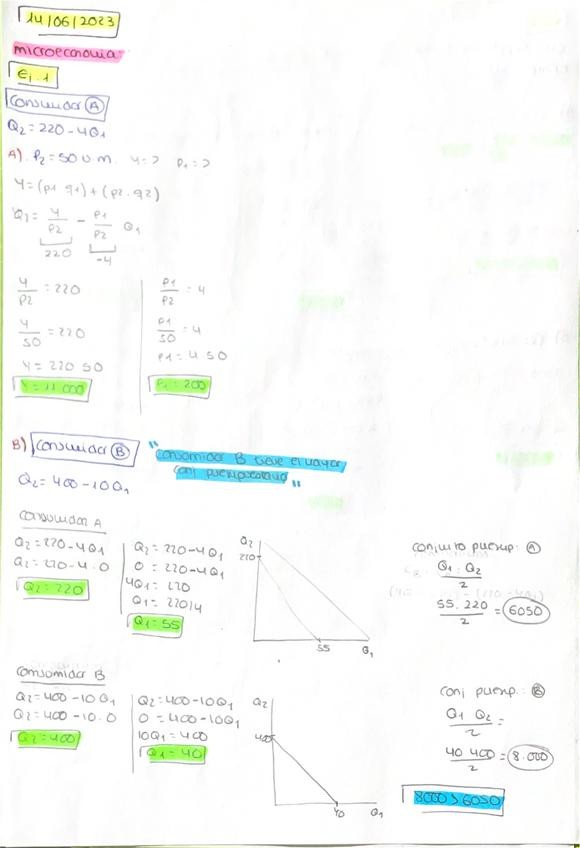 14/06/2023
microeconomia
Ej. 1
Consumidor A
Q2 = 220 - 4Q1
A). P2 = 50 u.m. Y = ? P1 = ?
Y = (p1 · q1) + (p2 · q2)
Q2 = Y/P2 - P1/P2 Q1
220 -4
Y/P2 = 220
Y/50 = 220
Y = 220 · 50
Y = 11 000
P1/P2 = 4
P1/50 = 4
P1 = 4 · 50
P1 = 200
B) Consumidor B
"Consumidor B tiene el mayor
conj presupuestario"
Q2 = 400 - 10Q1
Consumidor A
Q2 = 220 - 4Q1
Q2 = 220 - 4 · 0
Q2 = 220
Q2 = 220 - 4Q1
0 = 220 - 4Q1
4Q1 = 220
Q1 = 220/4
Q1 = 55
Q2
220
55 Q1
Conjunto presup: A
Q1 · Q2 / 2
55 · 220 / 2 = 6050
Consumidor B
Q2 = 400 - 10Q1
Q2 = 400 - 10 · 0
Q2 = 400
Q2 = 400 - 10Q1
0 = 400 - 10Q1
10Q1 = 400
Q1 = 40
Q2
400
40 Q1
Conj presup: B
Q1 Q2 / 2 =
40 · 400 / 2 = 8.000
8000 > 6050